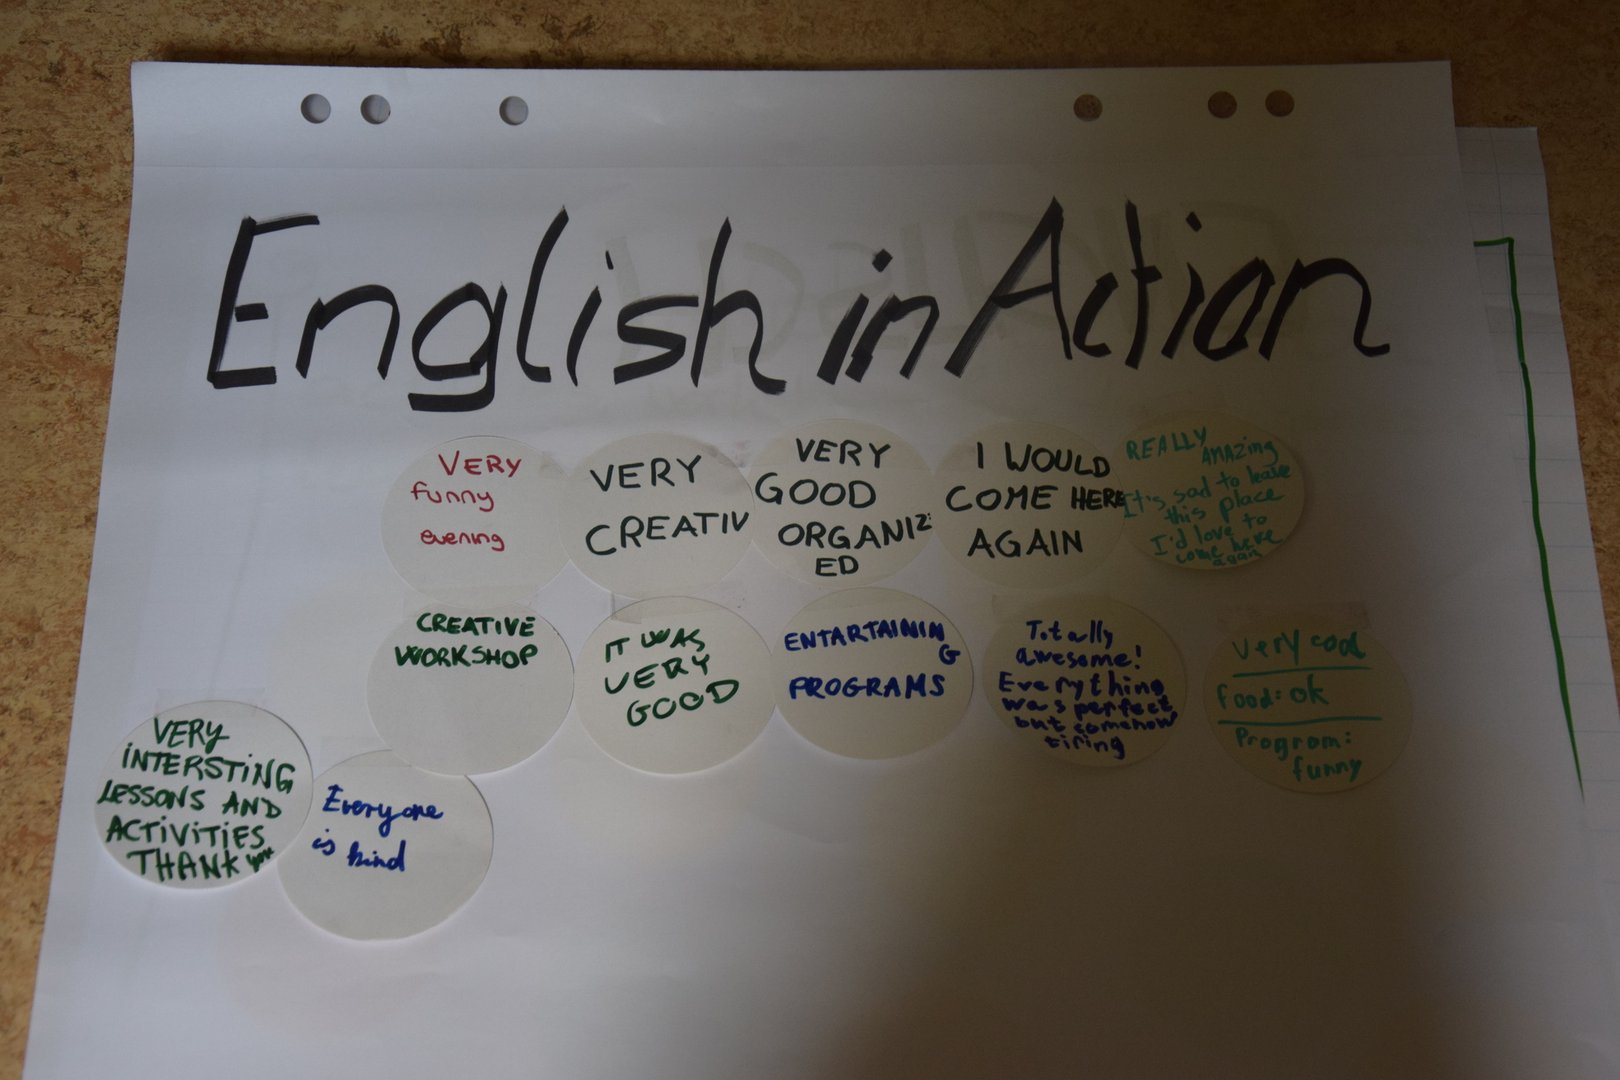 English in Action
VERY
funny
evening
VERY
CREATIV
VERY
GOOD
ORGANIZ-
ED
I WOULD
COME HERE
AGAIN
REALLY
AMAZing
It's sad to leave
this place
I'd love to
come here
again
CREATIVE
WORKSHOP
IT WAS
VERY
GOOD
ENTARTAININ
G
PROGRAMS
Totally
awesome!
Everything
was perfect
but somehow
tiring
very cool
food: ok
Program:
funny
VERY
INTERSTING
LESSONS AND
ACTIVITIES
THANK you
Everyone
is kind